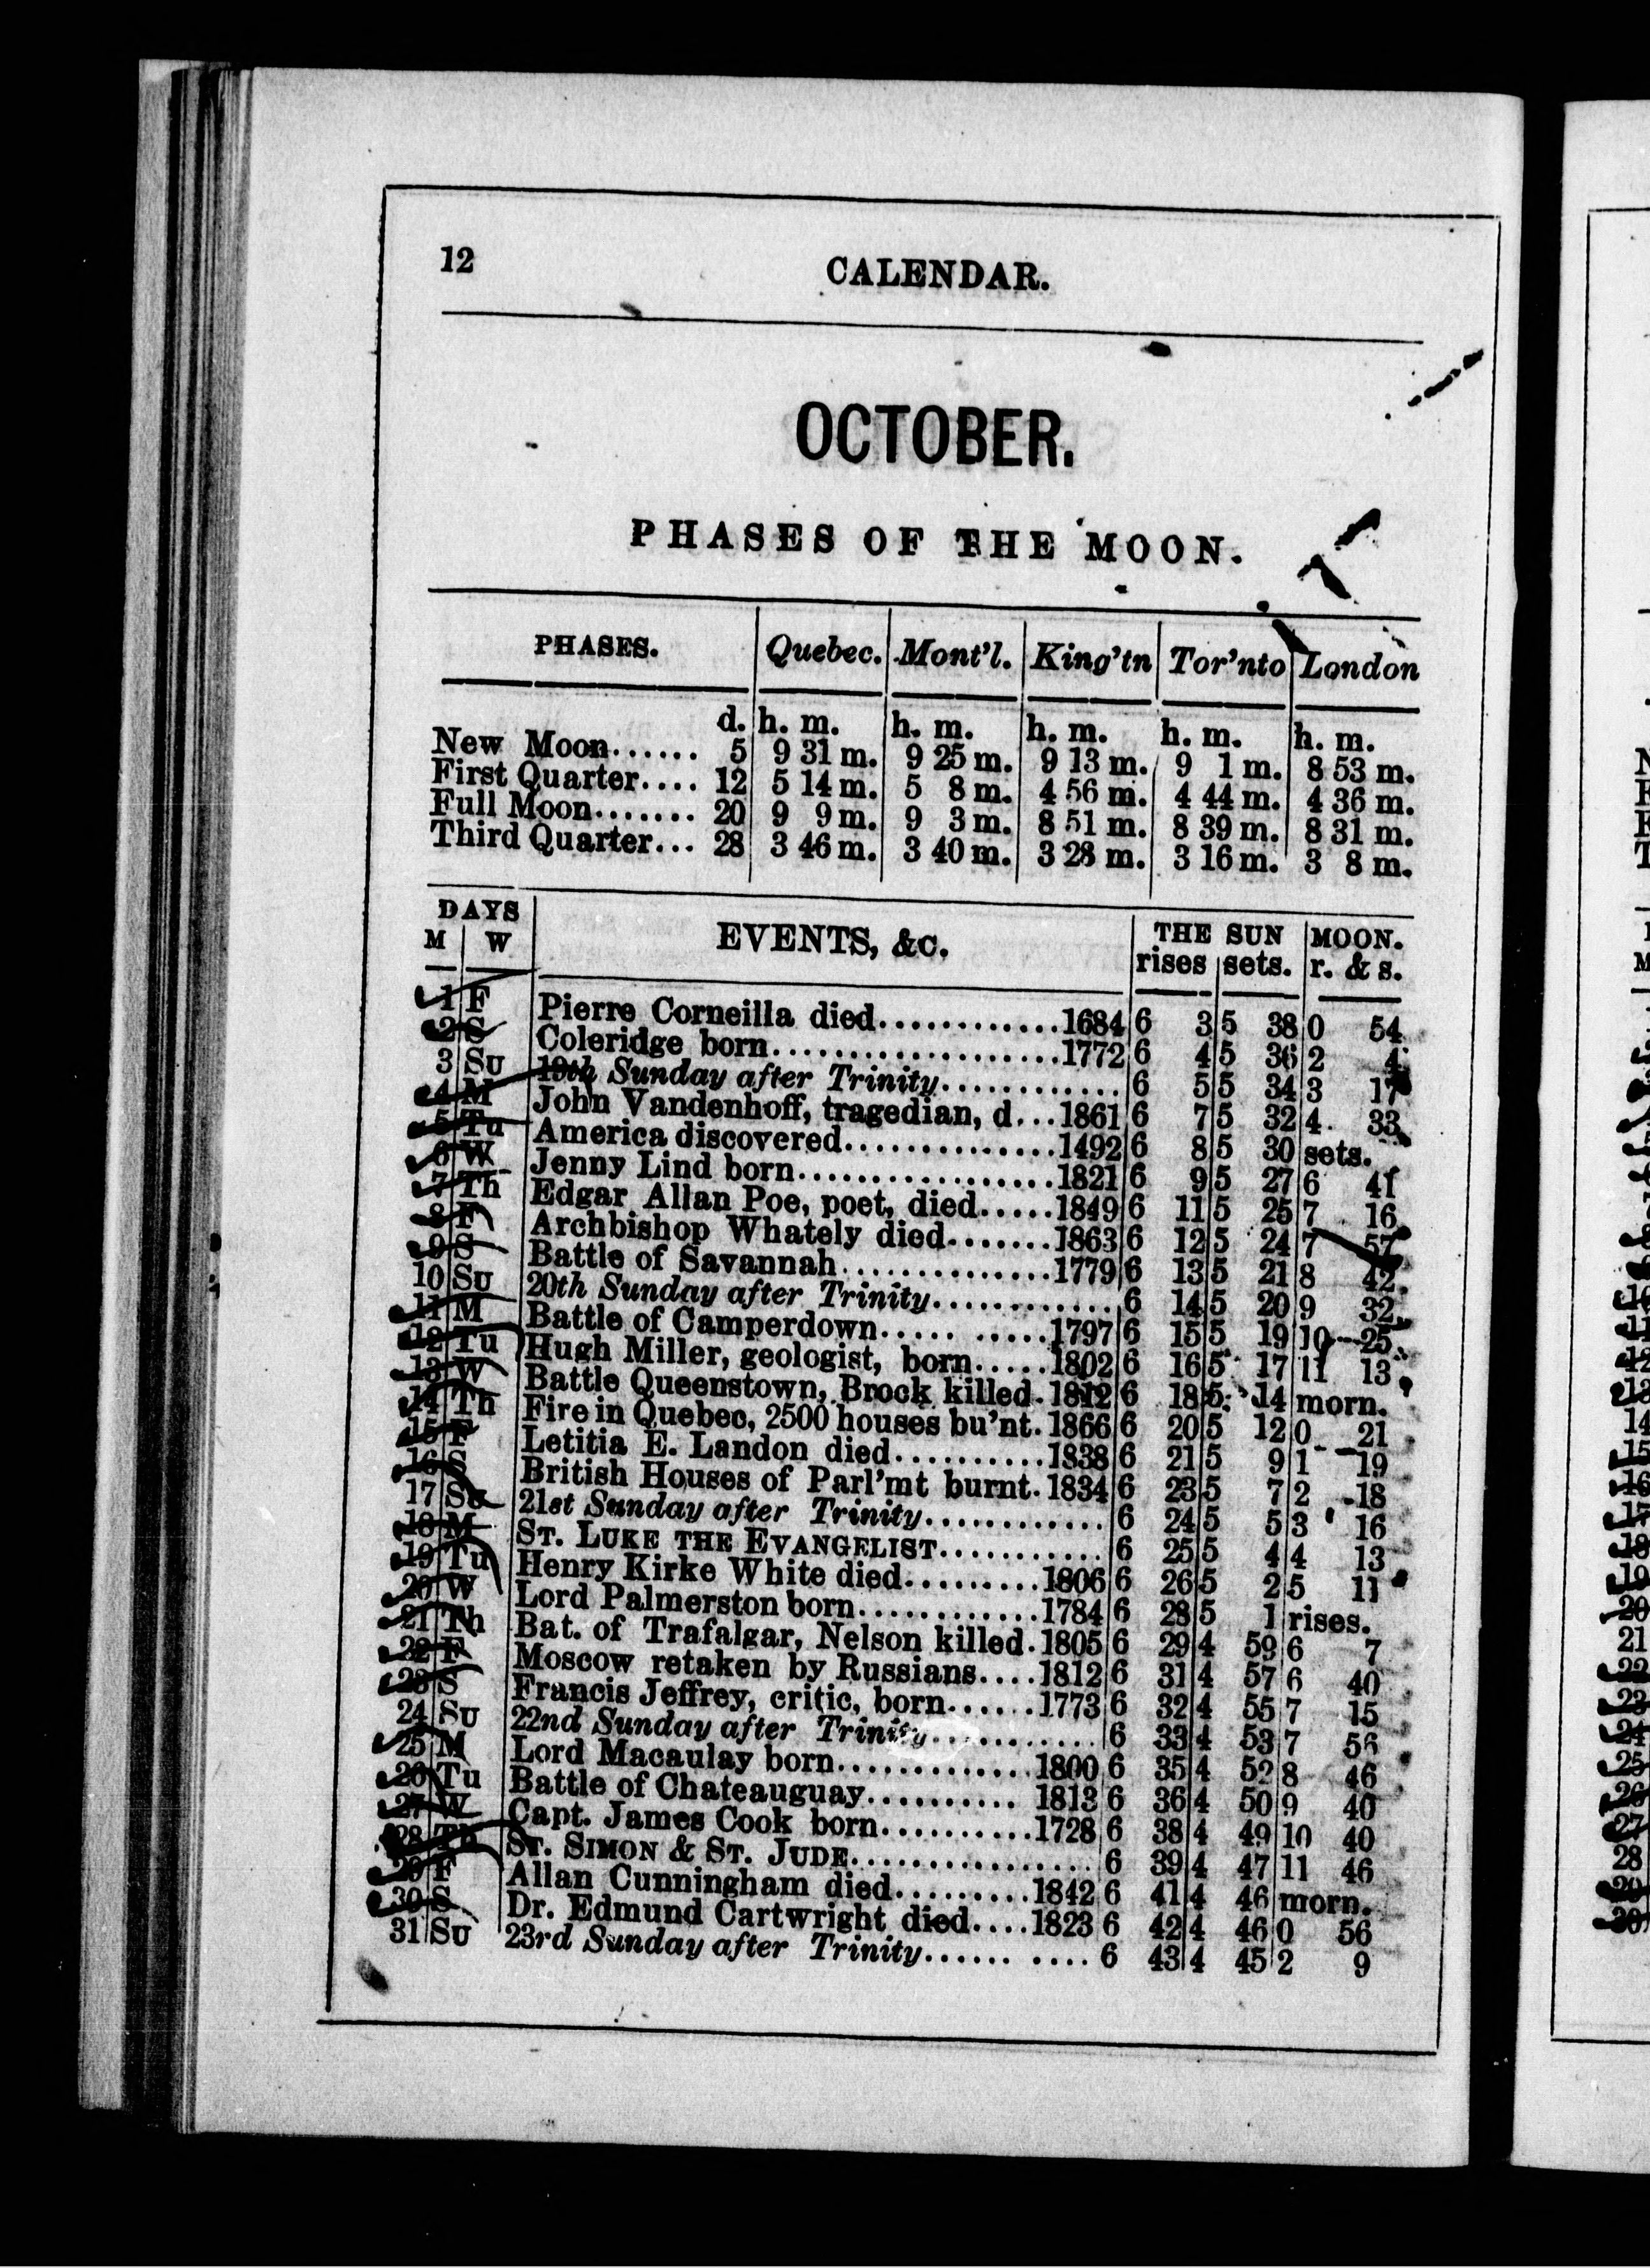 12
CALENDAR.
OCTOBER.
PHASES OF THE MOON.
PHASES. Quebec. Mont'l. King'tn Tor'nto London
d. h. m. h. m. h. m. h. m. h. m.
New Moon...... 5 9 31 m. 9 25 m. 9 13 m. 9 1 m. 8 53 m.
First Quarter.... 12 5 14 m. 5 8 m. 4 56 m. 4 44 m. 4 36 m.
Full Moon....... 20 9 9 m. 9 3 m. 8 51 m. 8 39 m. 8 31 m.
Third Quarter... 28 3 46 m. 3 40 m. 3 28 m. 3 16 m. 3 8 m.
DAYS EVENTS, &c. THE SUN MOON.
M W rises sets. r. & s.
1 F Pierre Corneilla died............1684 6 3 5 38 0 54
2 S Coleridge born...................1772 6 4 5 36 2 4
3 Su 19th Sunday after Trinity............ 6 5 5 34 3 17
4 M John Vandenhoff, tragedian, d...1861 6 7 5 32 4 33
5 Tu America discovered..............1492 6 8 5 30 sets.
6 W Jenny Lind born.................1821 6 9 5 27 6 41
7 Th Edgar Allan Poe, poet, died.....1849 6 11 5 25 7 16
8 F Archbishop Whately died.......1863 6 12 5 24 7 57
9 S Battle of Savannah..............1779 6 13 5 21 8 42
10 Su 20th Sunday after Trinity............ 6 14 5 20 9 32
11 M Battle of Camperdown..... .....1797 6 15 5 19 10 25
12 Tu Hugh Miller, geologist, born.....1802 6 16 5 17 11 13
13 W Battle Queenstown, Brock killed.1812 6 18 5 14 morn.
14 Th Fire in Quebec, 2500 houses bu'nt.1866 6 20 5 12 0 21
15 F Letitia E. Landon died..........1838 6 21 5 9 1 19
16 S British Houses of Parl'mt burnt.1834 6 23 5 7 2 18
17 Su 21st Sunday after Trinity............ 6 24 5 5 3 16
18 M ST. LUKE THE EVANGELIST........... 6 25 5 4 4 13
19 Tu Henry Kirke White died.........1806 6 26 5 2 5 11
20 W Lord Palmerston born............1784 6 28 5 1 rises.
21 Th Bat. of Trafalgar, Nelson killed.1805 6 29 4 59 6 7
22 F Moscow retaken by Russians....1812 6 31 4 57 6 40
23 S Francis Jeffrey, critic, born......1773 6 32 4 55 7 15
24 Su 22nd Sunday after Trinity........... 6 33 4 53 7 56
25 M Lord Macaulay born.............1800 6 35 4 52 8 46
26 Tu Battle of Chateauguay.......... 1813 6 36 4 50 9 40
27 W Capt. James Cook born..........1728 6 38 4 49 10 40
28 Th ST. SIMON & ST. JUDE................ 6 39 4 47 11 46
29 F Allan Cunningham died.........1842 6 41 4 46 morn.
30 S Dr. Edmund Cartwright died....1823 6 42 4 46 0 56
31 Su 23rd Sunday after Trinity...... .... 6 43 4 45 2 9